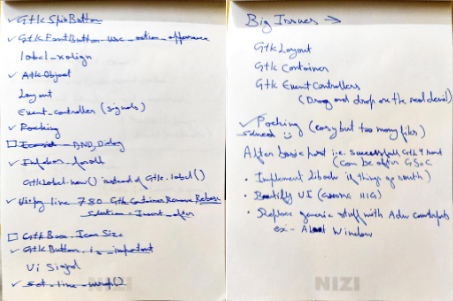 ✓ GtkSpinButton
✓ GtkFontButton use_action_appearance
label_xalign
✓ AtkObject
Layout
Event_controller (signals)
✓ Packing
DND_Dialog
✓ Infobar
GtkLabel.new() instead of Gtk.label()
line 780 GtkContainer Remove
Solution - Insert_after
GtkBox Icon Size
✓ GtkButton
UI Signal
✓ set_line_wrap()
NIZI
Big Issues →
Gtk Layout
Gtk Container
Gtk Event Controllers
(Drag and drop are the real devil)
✓ Packing (easy but too many files)
After basic port i.e. successful Gtk 4 port
(can be after GSoC)
• Implement (if things go south)
• Beautify UI (GNOME HIG)
• Replace generic stuff with Adw counterparts
ex - Window
NIZI